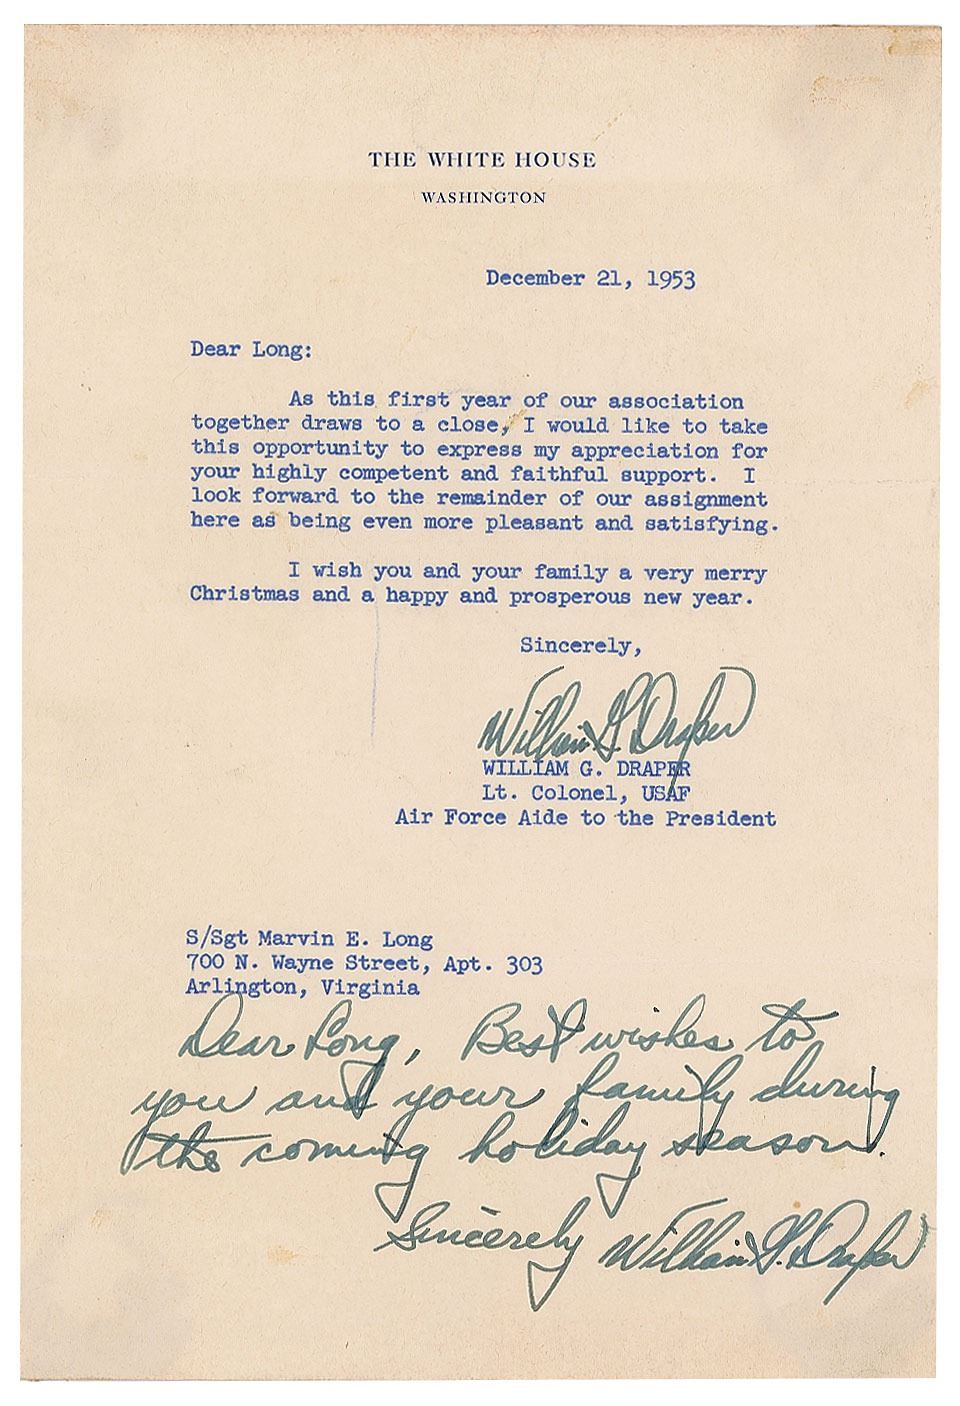 THE WHITE HOUSE
WASHINGTON
December 21, 1953
Dear Long:
As this first year of our association
together draws to a close, I would like to take
this opportunity to express my appreciation for
your highly competent and faithful support. I
look forward to the remainder of our assignment
here as being even more pleasant and satisfying.
I wish you and your family a very merry
Christmas and a happy and prosperous new year.
Sincerely,
William G. Draper
WILLIAM G. DRAPER
Lt. Colonel, USAF
Air Force Aide to the President
S/Sgt Marvin E. Long
700 N. Wayne Street, Apt. 303
Arlington, Virginia
Dear Long, Best wishes to
you and your family during
the coming holiday season.
Sincerely William G. Draper